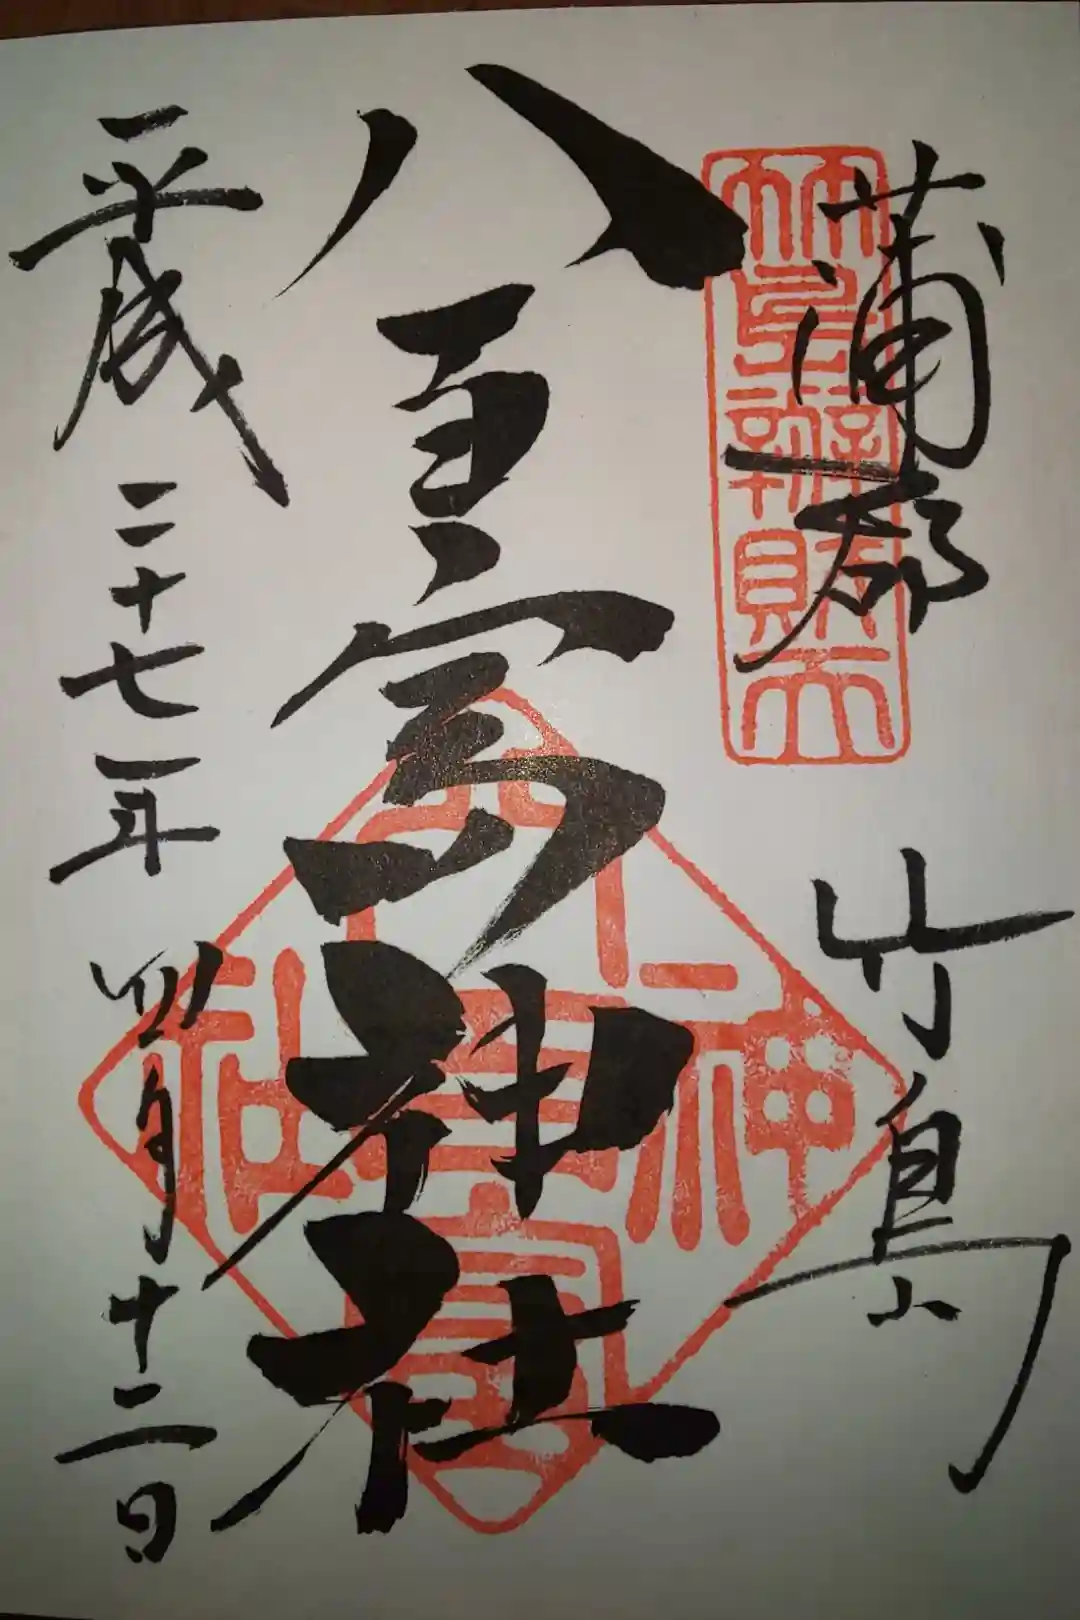 蒲郡 竹島
竹島辨財天
八百富神社
八百富神社
平成二十七年 四月十二日